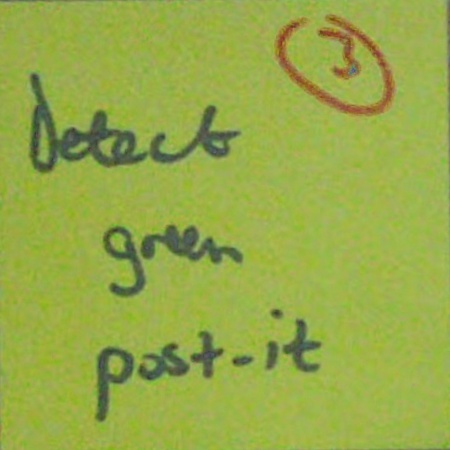 3
Detect
green
post-it